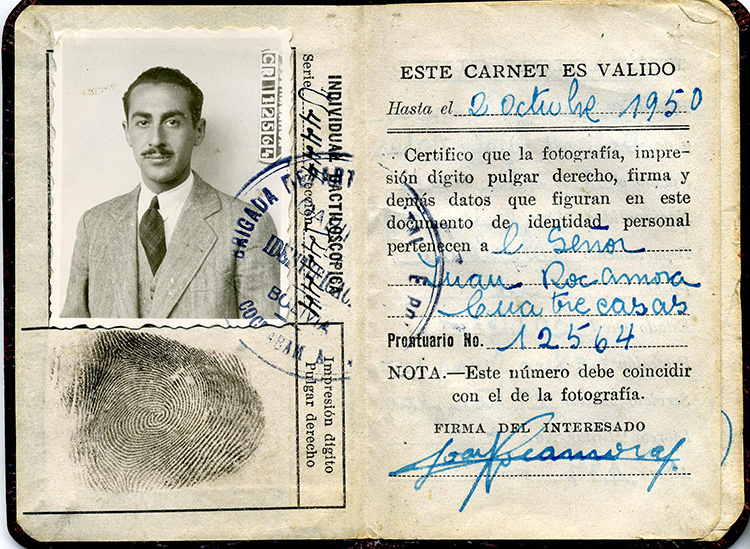 CR 112564
INDIVIDUAL DACTILOSCOPICA
Serie
Sección
BRIGADA DEPART
IDENTIFICAC
BOLIVIA
COCHABAMBA
Impresión dígito
Pulgar derecho
ESTE CARNET ES VALIDO
Hasta el 2 octubre 1950
Certifico que la fotografía, impre-
sión dígito pulgar derecho, firma y
demás datos que figuran en este
documento de identidad personal
pertenecen a l Señor
Juan Rocamora
Cuatrecasas
Prontuario No. 12564
NOTA.—Este número debe coincidir
con el de la fotografía.
FIRMA DEL INTERESADO
Juan Rocamora